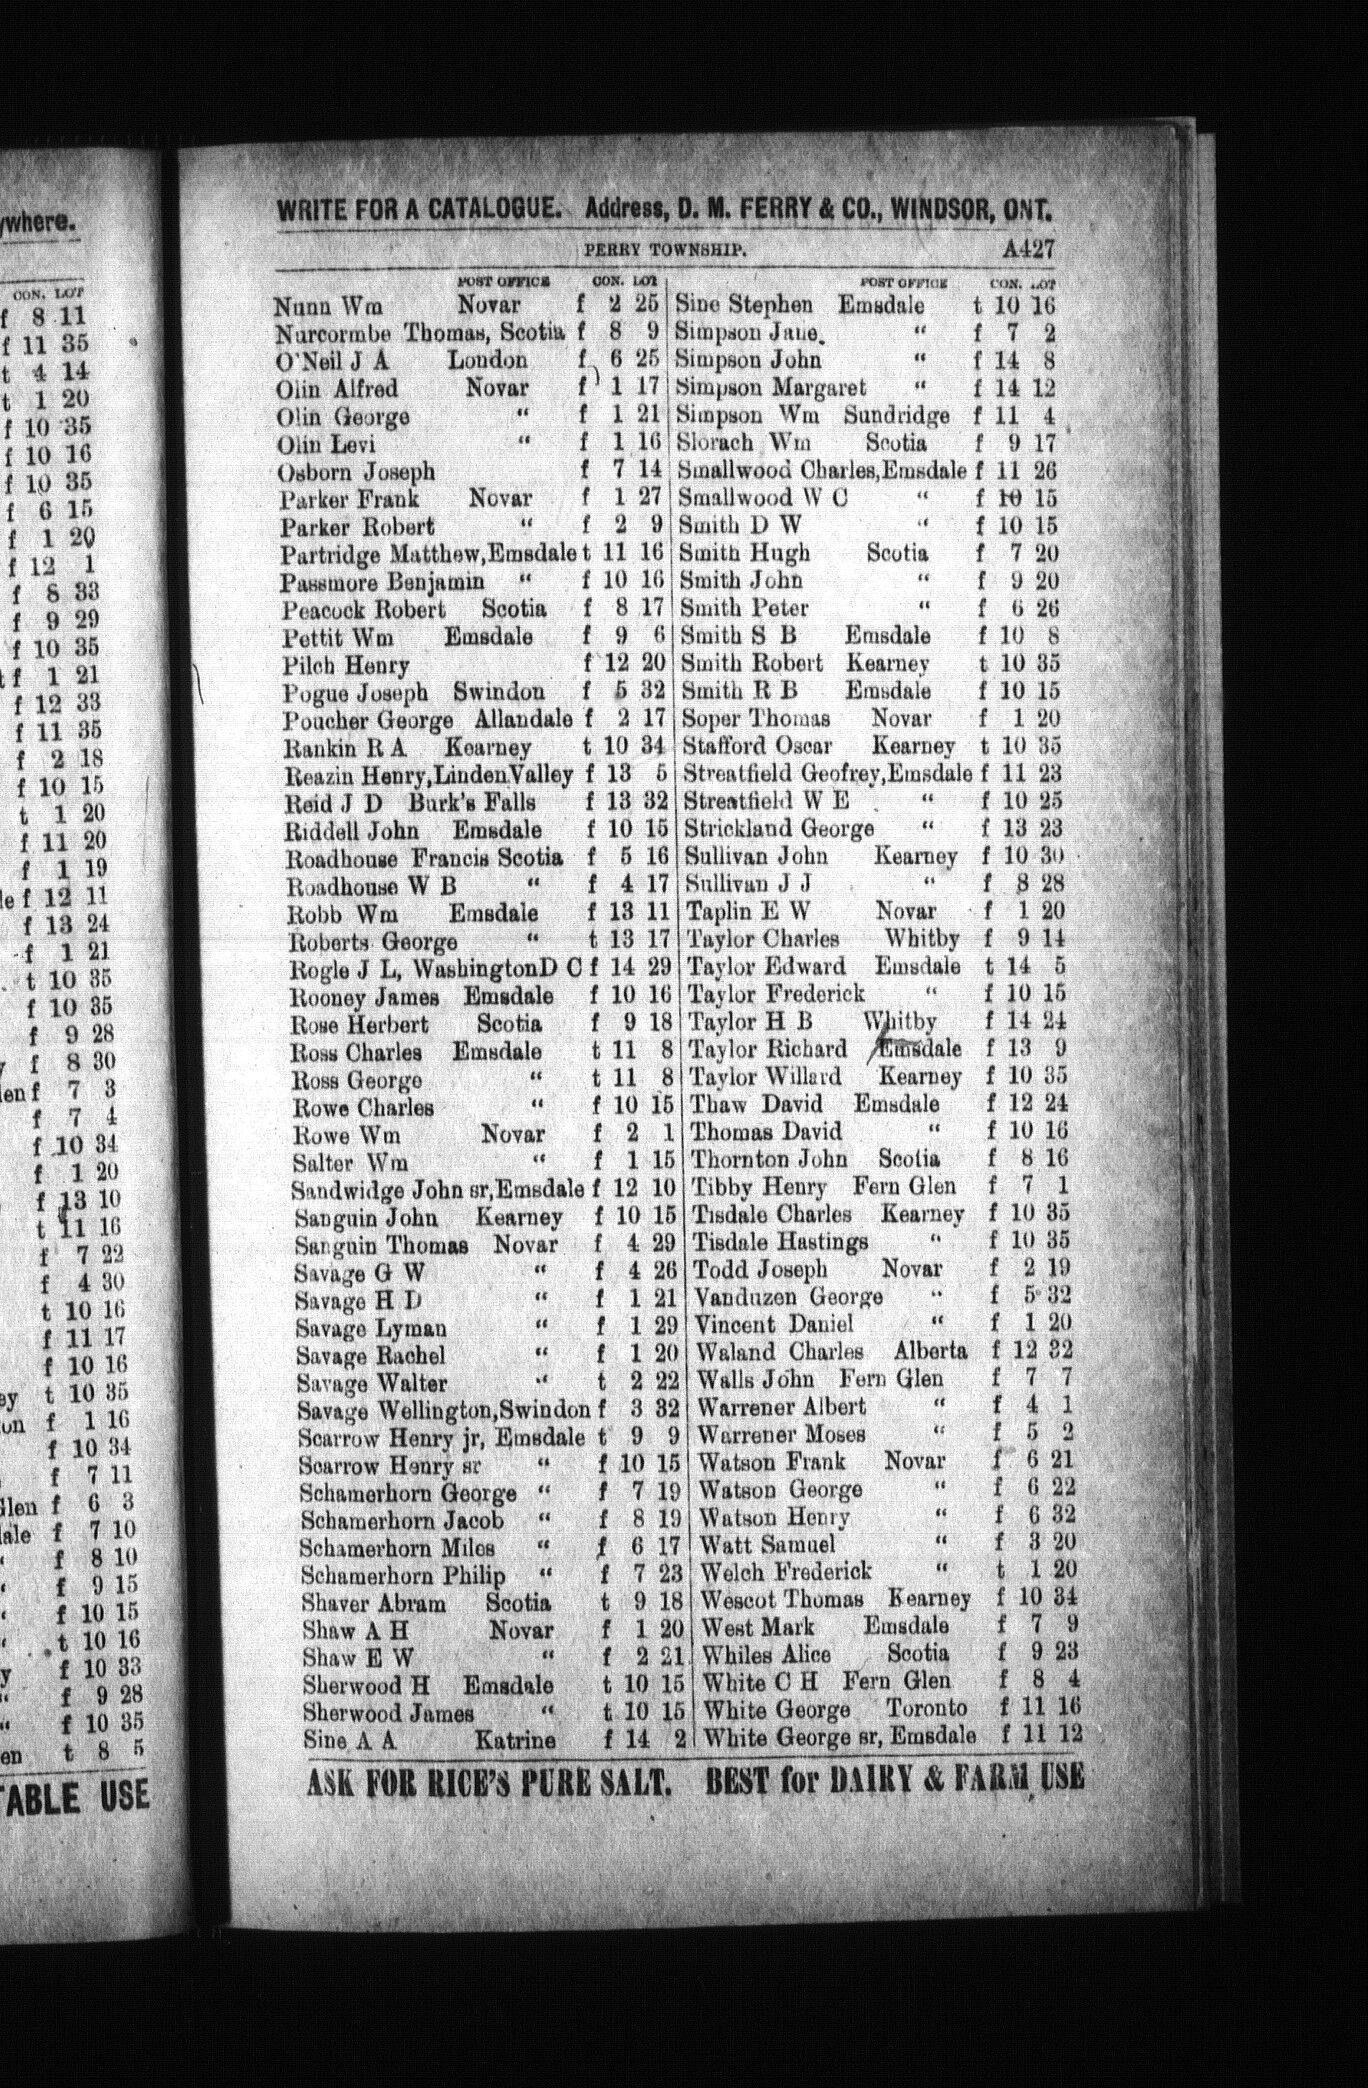 ywhere.
CON. LOT
f 8 11
f 11 35
t 4 14
t 1 20
f 10 35
f 10 16
f 10 35
f 6 15
f 1 20
f 12 1
f 8 33
f 9 29
f 10 35
t f 1 21
f 12 33
f 11 35
f 2 18
f 10 15
t 1 20
f 11 20
f 1 19
le f 12 11
f 13 24
f 1 21
t 10 35
f 10 35
f 9 28
y f 8 30
len f 7 3
f 7 4
f 10 34
f 1 20
f 13 10
t 11 16
f 7 22
f 4 30
t 10 16
f 11 17
f 10 16
ey t 10 35
on f 1 16
f 10 34
f 7 11
Glen f 6 3
dale f 7 10
“ f 8 10
“ f 9 15
“ f 10 15
“ t 10 16
y f 10 33
“ f 9 28
“ f 10 35
en t 8 5
TABLE USE
WRITE FOR A CATALOGUE. Address, D. M. FERRY & CO., WINDSOR, ONT.
PERRY TOWNSHIP. A427
POST OFFICE CON. LOT
Nunn Wm Novar f 2 25
Nurcormbe Thomas, Scotia f 8 9
O'Neil J A London f 6 25
Olin Alfred Novar f 1 17
Olin George “ f 1 21
Olin Levi “ f 1 16
Osborn Joseph f 7 14
Parker Frank Novar f 1 27
Parker Robert “ f 2 9
Partridge Matthew,Emsdale t 11 16
Passmore Benjamin “ f 10 16
Peacock Robert Scotia f 8 17
Pettit Wm Emsdale f 9 6
Pilch Henry f 12 20
Pogue Joseph Swindon f 5 32
Poucher George Allandale f 2 17
Rankin R A Kearney t 10 34
Reazin Henry,LindenValley f 13 5
Reid J D Burk's Falls f 13 32
Riddell John Emsdale f 10 15
Roadhouse Francis Scotia f 5 16
Roadhouse W B “ f 4 17
Robb Wm Emsdale f 13 11
Roberts George “ t 13 17
Rogle J L, WashingtonD C f 14 29
Rooney James Emsdale f 10 16
Rose Herbert Scotia f 9 18
Ross Charles Emsdale t 11 8
Ross George “ t 11 8
Rowe Charles “ f 10 15
Rowe Wm Novar f 2 1
Salter Wm “ f 1 15
Sandwidge John sr,Emsdale f 12 10
Sanguin John Kearney f 10 15
Sanguin Thomas Novar f 4 29
Savage G W “ f 4 26
Savage H D “ f 1 21
Savage Lyman “ f 1 29
Savage Rachel “ f 1 20
Savage Walter “ t 2 22
Savage Wellington,Swindon f 3 32
Scarrow Henry jr, Emsdale t 9 9
Scarrow Henry sr “ f 10 15
Schamerhorn George “ f 7 19
Schamerhorn Jacob “ f 8 19
Schamerhorn Miles “ f 6 17
Schamerhorn Philip “ f 7 23
Shaver Abram Scotia t 9 18
Shaw A H Novar f 1 20
Shaw E W “ f 2 21
Sherwood H Emsdale t 10 15
Sherwood James “ t 10 15
Sine A A Katrine f 14 2
POST OFFICE CON. LOT
Sine Stephen Emsdale t 10 16
Simpson Jane “ f 7 2
Simpson John “ f 14 8
Simpson Margaret “ f 14 12
Simpson Wm Sundridge f 11 4
Slorach Wm Scotia f 9 17
Smallwood Charles,Emsdale f 11 26
Smallwood W C “ f 10 15
Smith D W “ f 10 15
Smith Hugh Scotia f 7 20
Smith John “ f 9 20
Smith Peter “ f 6 26
Smith S B Emsdale f 10 8
Smith Robert Kearney t 10 35
Smith R B Emsdale f 10 15
Soper Thomas Novar f 1 20
Stafford Oscar Kearney t 10 35
Streatfield Geofrey,Emsdale f 11 23
Streatfield W E “ f 10 25
Strickland George “ f 13 23
Sullivan John Kearney f 10 30
Sullivan J J “ f 8 28
Taplin E W Novar f 1 20
Taylor Charles Whitby f 9 14
Taylor Edward Emsdale t 14 5
Taylor Frederick “ f 10 15
Taylor H B Whitby f 14 24
Taylor Richard Emsdale f 13 9
Taylor Willard Kearney f 10 35
Thaw David Emsdale f 12 24
Thomas David “ f 10 16
Thornton John Scotia f 8 16
Tibby Henry Fern Glen f 7 1
Tisdale Charles Kearney f 10 35
Tisdale Hastings “ f 10 35
Todd Joseph Novar f 2 19
Vanduzen George “ f 5 32
Vincent Daniel “ f 1 20
Waland Charles Alberta f 12 32
Walls John Fern Glen f 7 7
Warrener Albert “ f 4 1
Warrener Moses “ f 5 2
Watson Frank Novar f 6 21
Watson George “ f 6 22
Watson Henry “ f 6 32
Watt Samuel “ f 3 20
Welch Frederick “ t 1 20
Wescot Thomas Kearney f 10 34
West Mark Emsdale f 7 9
Whiles Alice Scotia f 9 23
White C H Fern Glen f 8 4
White George Toronto f 11 16
White George sr, Emsdale f 11 12
ASK FOR RICE'S PURE SALT. BEST for DAIRY & FARM USE